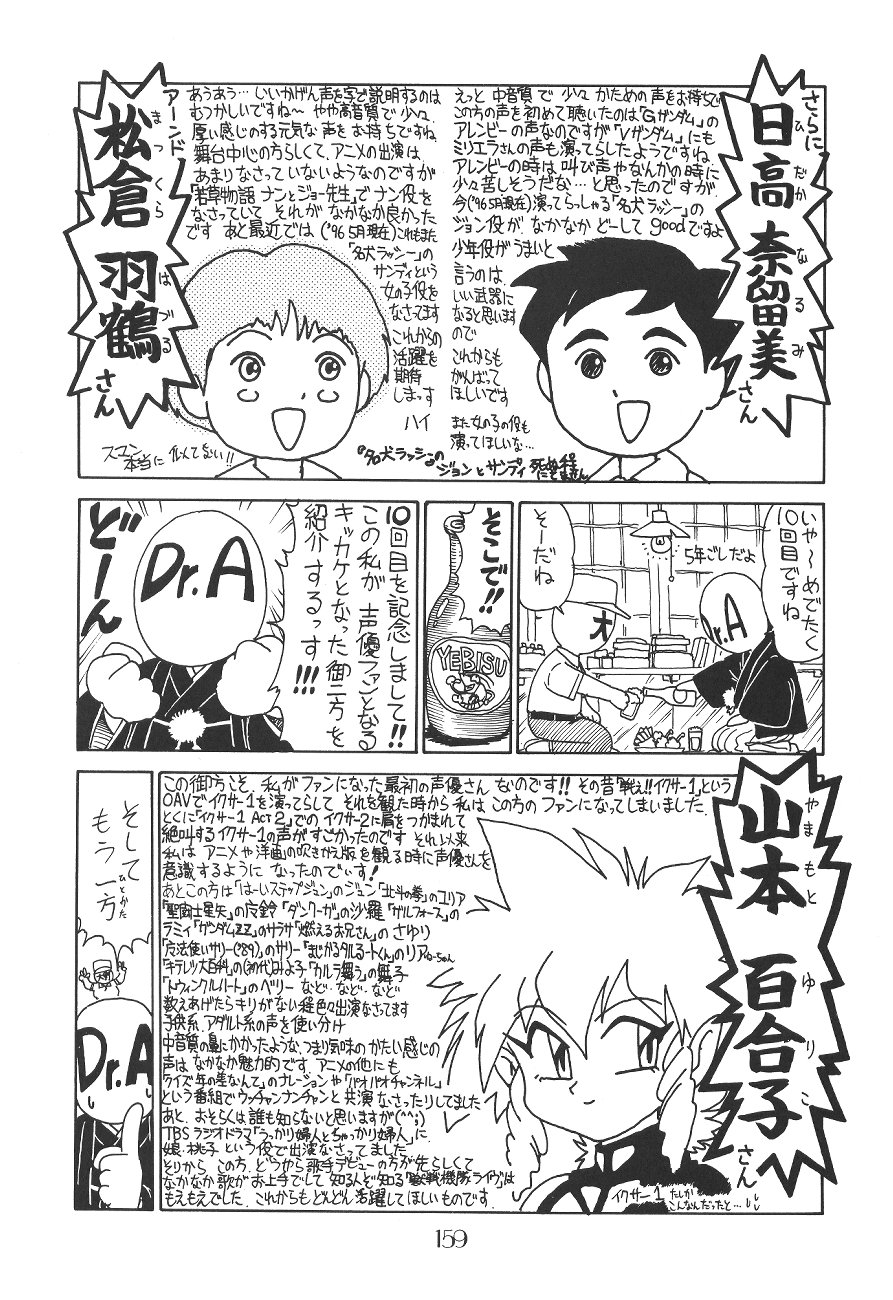 さらに
日高 奈留美さん
ひだか なるみ
えっと 中音質で 少々 かための 声をお持ちで
この方の声を初めて聴いたのは「Gガンダム」の
アレンビーの声なのですが「Vガンダム」にも
ミリエラさんの声も演ってらしたようですね
アレンビーの時には 叫び声やなんかの時に
少々苦しそうだな…と思ったのですが
今('96 5月現在)演ってらっしゃる「名犬ラッシー」の
ジョン役が、なかなか どーして goodですよ
少年役がうまいと
言うのは、
いい武器に
なると思います
ので
これからも
がんばって
ほしいです
また女の子の役も
演ってほしいな…
アーンド
松倉 羽鶴さん
まつくら はづる
あうあう…いいかげん声を字で説明するのは
むつかしいですね〜 やや高音質で少々、
厚い感じのする元気な 声をお持ちですね
舞台中心の方らしくて、アニメの出演は、
あまりなさって いないようなのですが
「若草物語 ナンとジョー先生」で ナン役を
なさっていて それが なかなか良かった
です あと最近では('96 5月現在)これもまた
「名犬ラッシー」の
サンディという
女の子役を
なさってます
これからの
活躍を
期待
しまっす
ハイ
スマン
本当に 似てない!!
「名犬ラッシー」の
ジョンとサンディ 死ぬ程
にてませんん
いや〜めでたく
10回目ですね
5年ごしだよ
そーだね
大
Dr.A
そこで!!
YEBISU
10回目を記念しまして!!
この私が 声優ファンとなる
キッカケとなった御二方を
紹介するっす!!!
Dr.A
どーん
山本 百合子さん
やまもと ゆりこ
この御方こそ、私が ファンになった最初の声優さん なのです!! その昔「戦え!!イクサー1」という
OAVでイクサー1を演ってらして それを観た時から 私は この方の ファンになってしまいました。
とくに「イクサー1 Act2」での イクサー2に肩をつかまれて
絶叫するイクサー1の声がすごかったのです それ以来
私は アニメや洋画の吹きかえ版を観る時に声優さんを
意識するように なったのでいす!
あとこの方は「はーいステップジュン」のジュン「北斗の拳」のユリア
「聖闘士星矢」の 「ダンクーガ」の沙羅「ガルフォース」の
ラミィ「ガンダムZZ」のサラサ「燃えるお兄さん」の さゆり
「魔法使いサリー('89)」のサリー「まじかるタルるートくん」のリア
「キテレツ大百科」の(初代)みよ子「カルラ舞う」の 舞子
「トウィンクルハート」の ベリー など…など…など
数えあげたらキリがない程色々出演なさってます
子供系、アダルト系の声を使い分け
中音質の量にかかったような、つまり気味の かたい感じの
声は なかなか魅力的です アニメの他にも
「クイズ!年の差なんて」のナレーションや「パオパオチャンネル」
という番組でウッチャンナンチャンと 共演 なさったりしてました
あと、おそらくは 誰も知らないと思いますが(^^;)
TBSラジオドラマ「うっかり婦人とちゃっかり婦人」に、
娘、桃子 という役で出演 なさってました
そりから この方、どうやら 歌手デビューの方が先らしくて
なかなか歌が お上手でして 知る人ぞ知る「獣戦機隊ライヴ」は
もえもえでした。これからも どんどん 活躍してほしい ものです。
イクサー1 たしか
こんなんだったと…
そして
もう一方
ひとかた
Dr.A
159